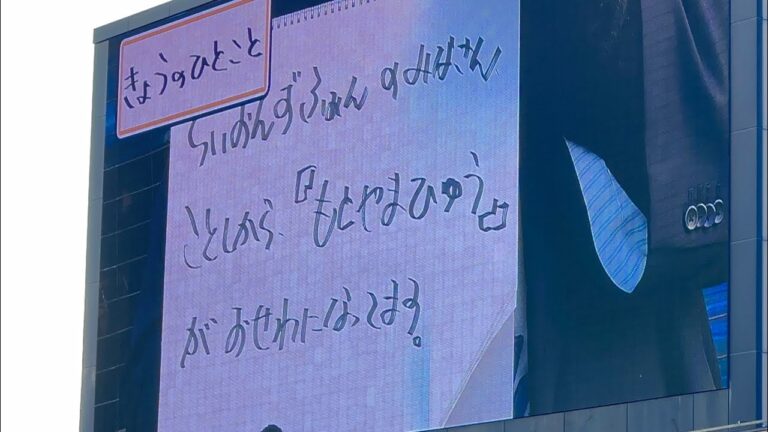 きょうのひとこと
らいおんずふぁんのみなさん
ことしから、『もとやまひゅうど』
がおせわになってます。